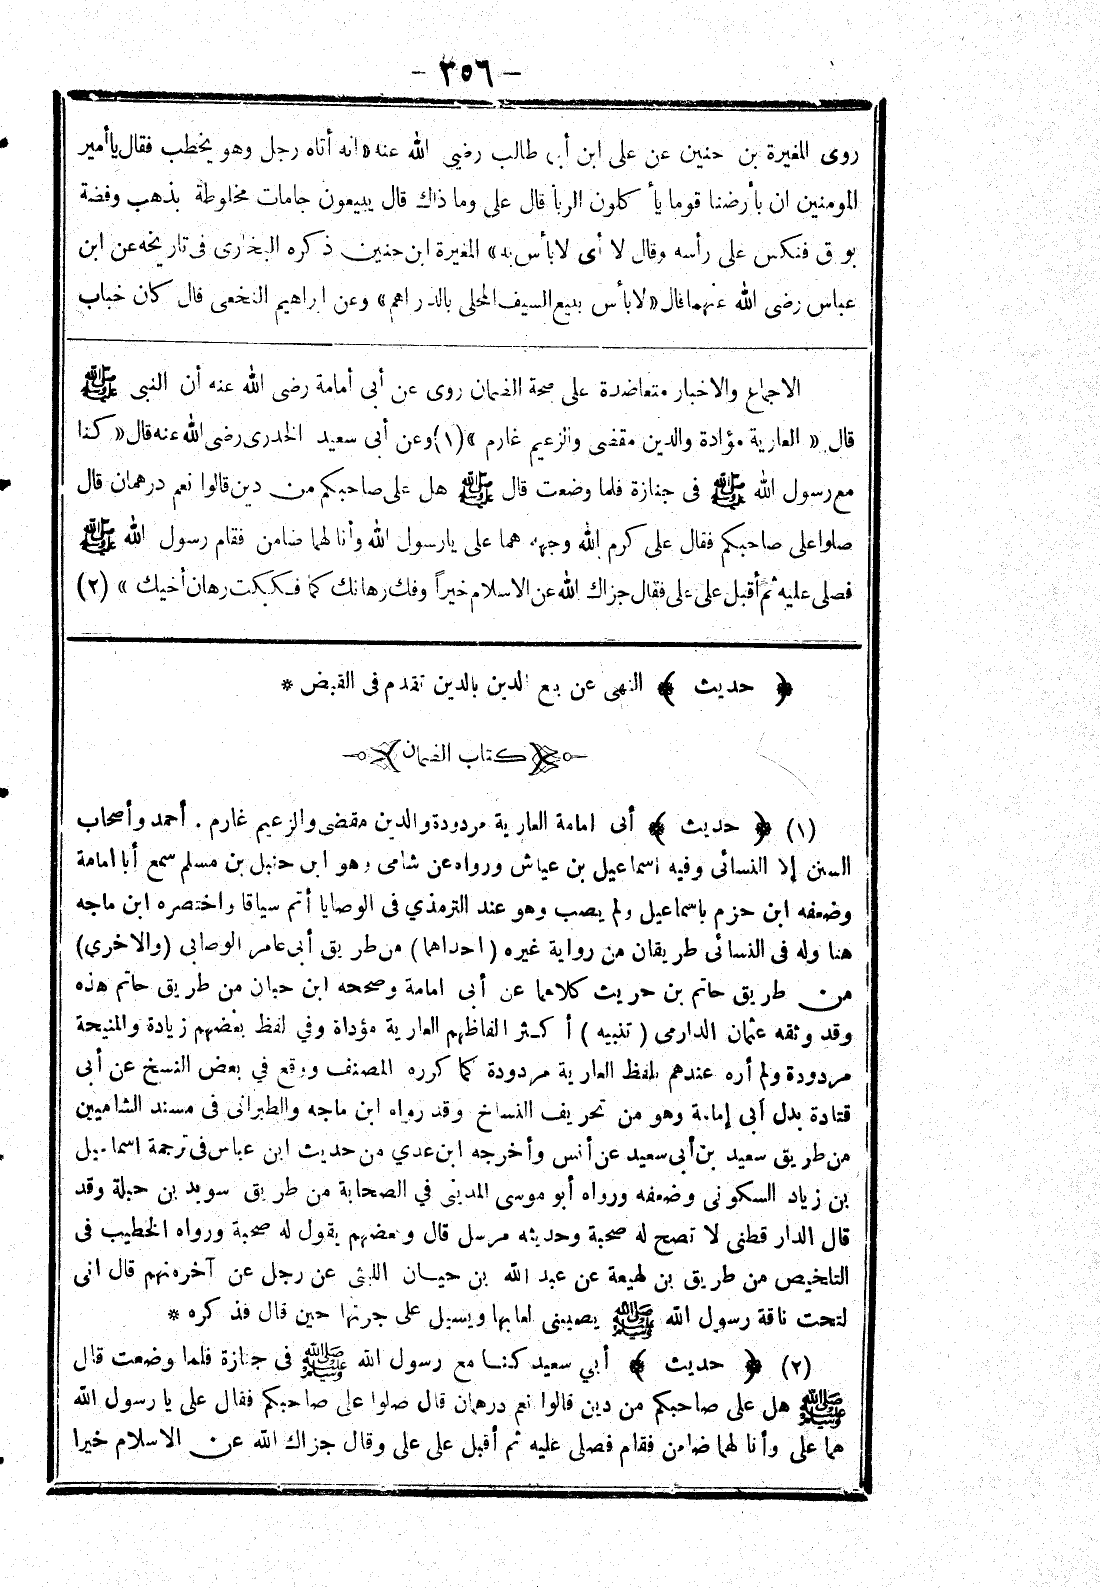 - ٣٥٦ -
روى المغيرة بن حنين عن على ابن أبى طالب رضي الله عنه «انه أتاه رجل وهو يخطب فقال ياأمير
المومنين ان بأرضنا قوما يأ كلون الربا قال على وما ذاك قال يبيعون جامات مخلوطة بذهب وفضة
بو ق فنكس على رأسه وقال لا أى لابأس به» المغيرة ابن حنين ذ كره البخارى فى تاريخه عن ابن
عباس رضى الله عنهما قال «لا بأس ببيع السيف المحلى بالدراهم» وعن ابراهيم النخعى قال كان خباب
الاجماع والاخبار متعاضدة على صحة الضمان روى عن أبى أمامة رضى الله عنه أن النبى ﷺ
قال « العارية مؤادة والدين مقضى والزعيم غارم » (١) وعن أبى سعيد الخدرى رضى الله عنه قال « كنا
مع رسول الله ﷺ فى جنازة فلما وضعت قال ﷺ هل على صاحبكم من دين قالوا نعم درهمان قال
صلوا على صاحبكم فقال على كرم الله وجهه هما على يارسول الله وأنا لهما ضامن فقام رسول الله ﷺ
فصلى عليه ثم أقبل على على فقال جزاك الله عن الاسلام خيراً وفك رهانك كما فككت رهان أخيك » (٢)
﴿ حديث ﴾ النهى عن بيع الدين بالدين تقدم فى القبض *
كتاب الضمان
(١) ﴿ حديث ﴾ أبى امامة العارية مردودة والدين مقضى والزعيم غارم . أحمد وأصحاب
السنن إلا النسائى وفيه اسماعيل بن عياش ورواه عن شامى وهو ابن حنبل بن مسلم سمع أبا امامة
وضعفه ابن حزم باسماعيل ولم يصب وهو عند الترمذي فى الوصايا أتم سياقا واختصره ابن ماجه
هنا وله فى النسائى طريقان من رواية غيره ( احداهما ) من طريق أبى عامر الوصابى ( والاخرى )
من طريق حاتم بن حريث كلاهما عن أبى امامة وصححه ابن حبان من طريق حاتم هذه
وقد وثقه عثمان الدارمى ( تنبيه ) أ كثر الفاظهم العارية مؤداة وفي لفظ بعضهم زيادة والمنيحة
مردودة ولم أره عندهم بلفظ العارية مردودة كما كرره المصنف ووقع في بعض النسخ عن أبى
قتادة بدل أبى إمامة وهو من تحريف النساخ وقد رواه ابن ماجه والطبرانى فى مسند الشاميين
من طريق سعيد بن أبى سعيد عن أنس وأخرجه ابن عدي من حديث ابن عباس فى ترجمة اسماعيل
بن زياد السكونى وضعفه ورواه أبو موسى المدينى في الصحابة من طريق سويد بن حبلة وقد
قال الدار قطنى لا تصح له صحبة وحديثه مرسل قال وبعضهم يقول له صحبة ورواه الخطيب فى
التلخيص من طريق بن لهيعة عن عبد الله بن حيان الليثى عن رجل عن آخر منهم قال انى
لتحت ناقة رسول الله ﷺ يصيبنى لعابها ويسيل على جرتها حين قال فذ كره *
(٢) ﴿ حديث ﴾ أبي سعيد كنا مع رسول الله ﷺ فى جنازة فلما وضعت قال
ﷺ هل على صاحبكم من دين قالوا نعم درهمان قال صلوا على صاحبكم فقال على يا رسول الله
هما على وأنا لهما ضامن فقام فصلى عليه ثم أقبل على على وقال جزاك الله عن الاسلام خيرا